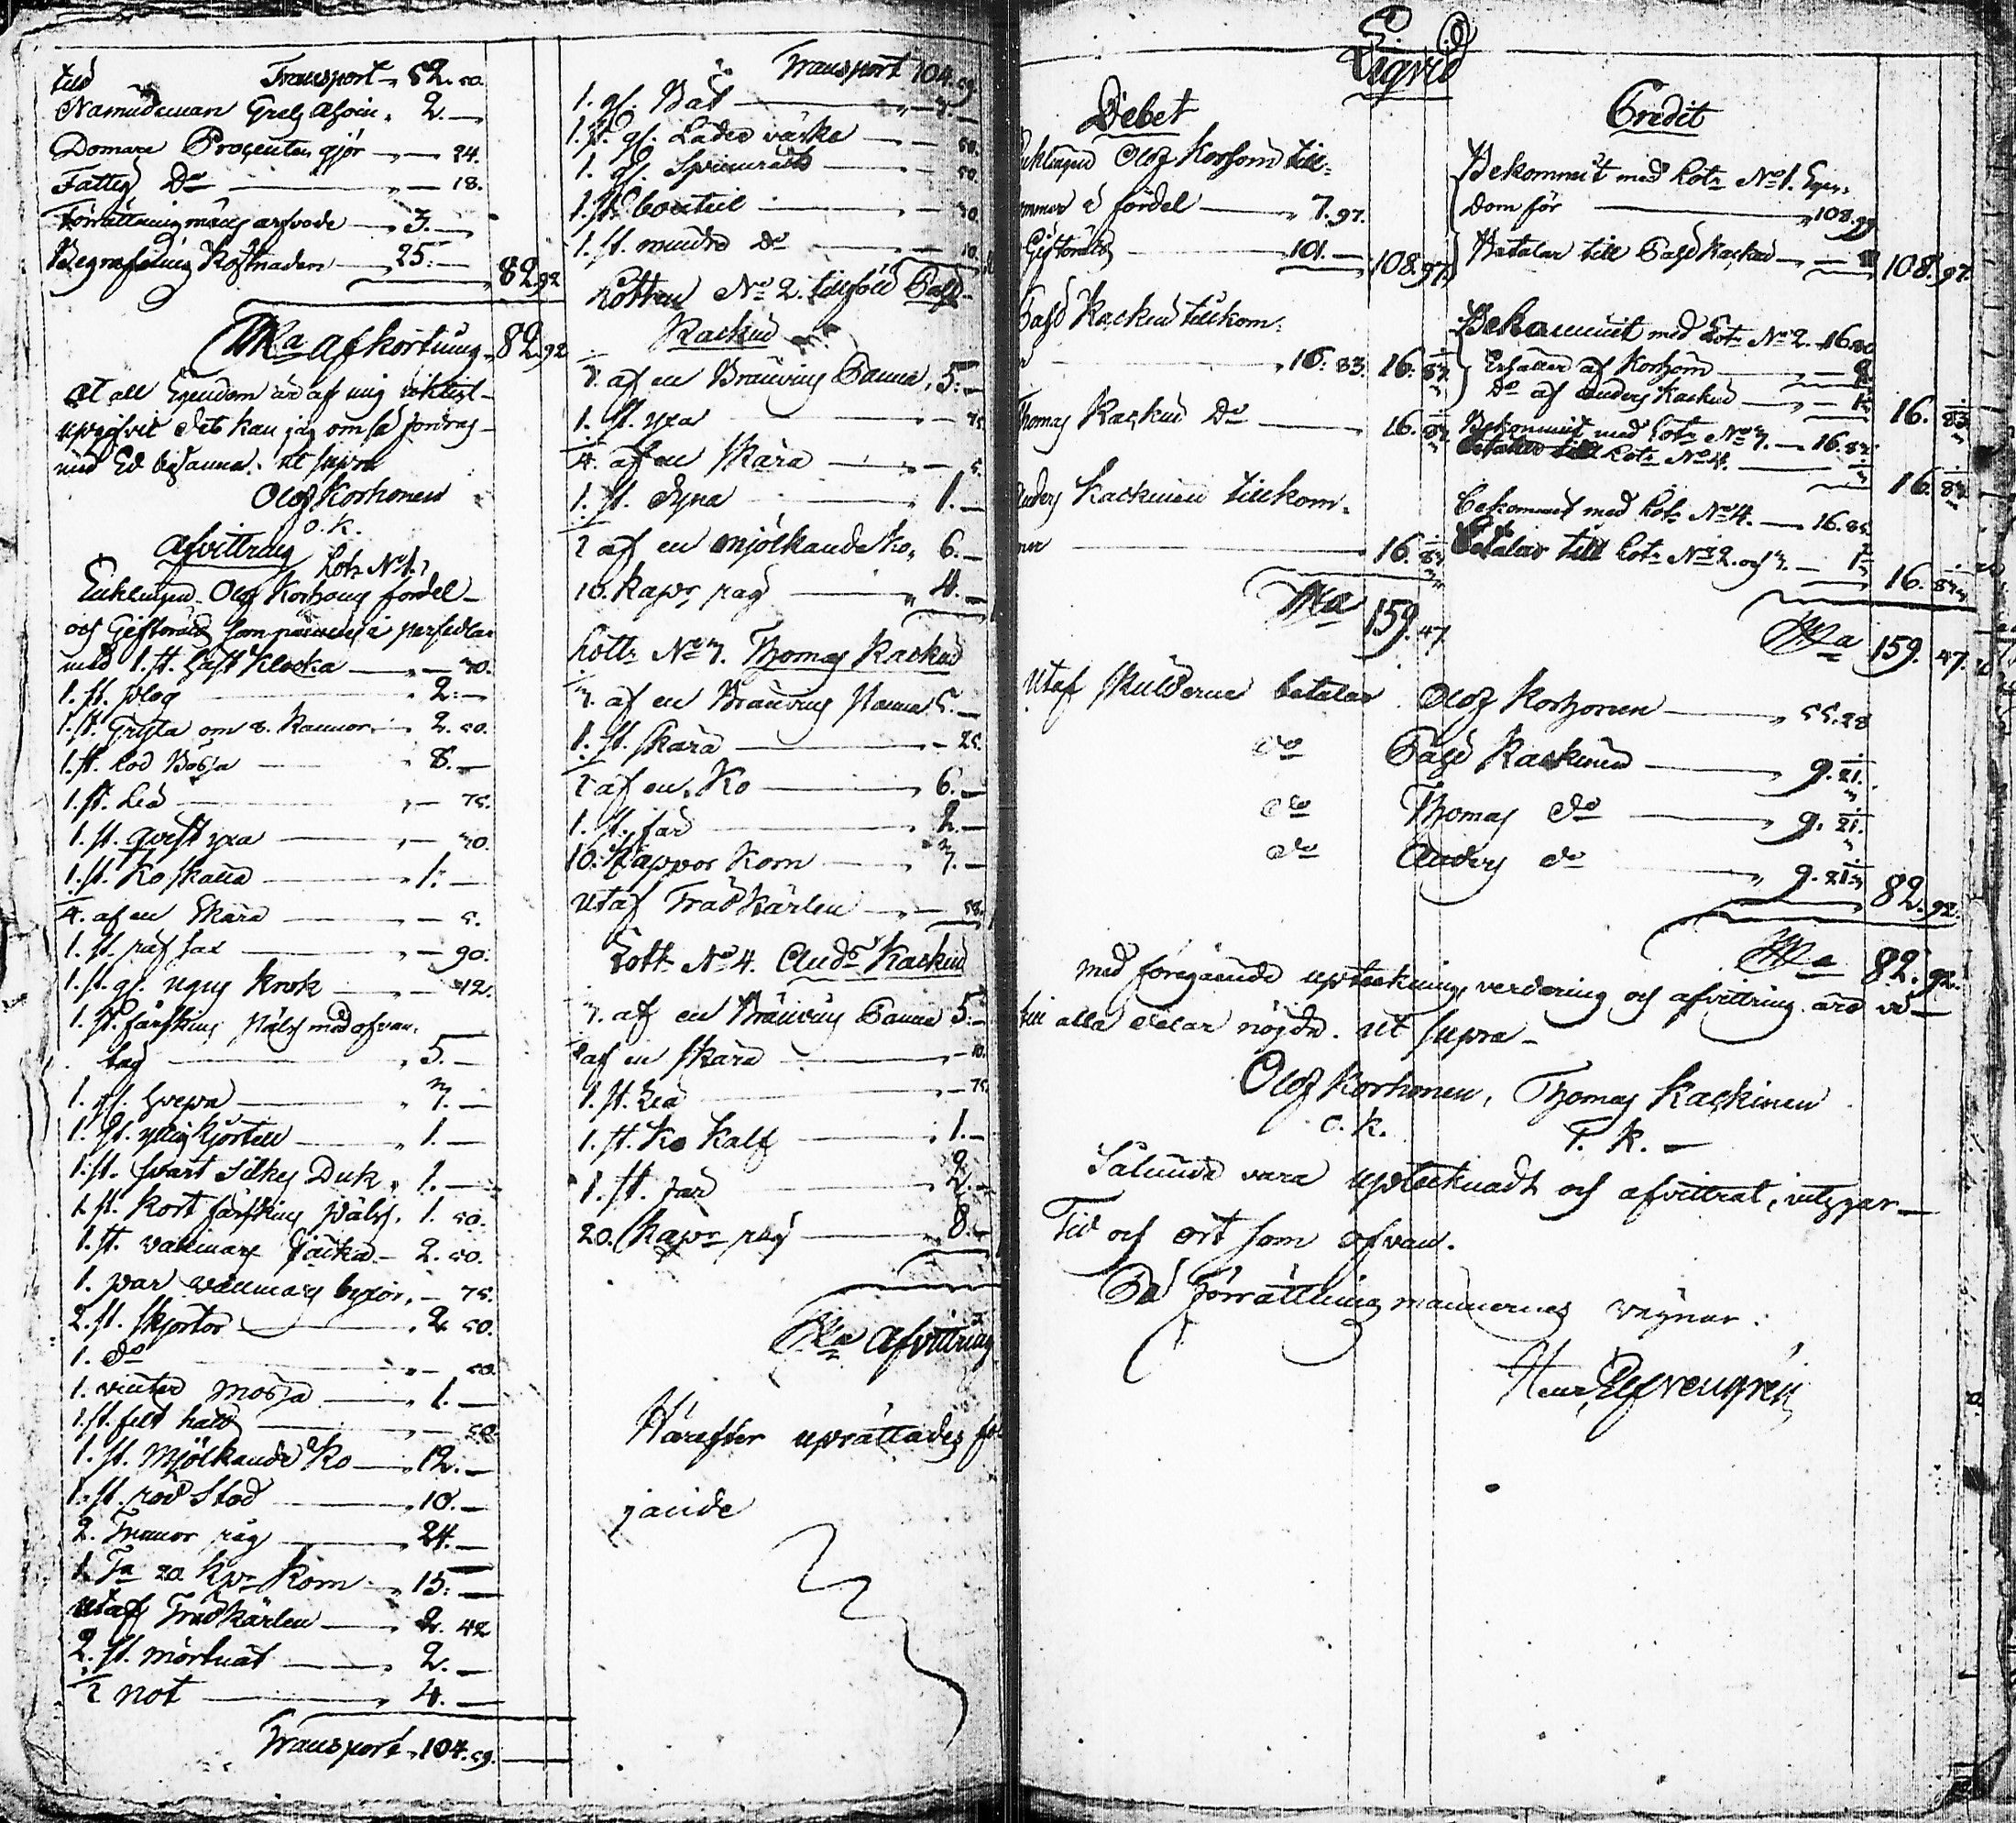 till Transport 52. 50.
Nämndeman Grels 2. —
Domare Procenten gjör — 24.
Fattig Do — 18.
Förrättningsmäns arfvode — 3. —
Begrafnings Kostnaden — 25. — 82. 92
Sma afkortning 82. 92
At all Egendom är af mig riktigt
upgifvit det kan jag om så fordras
med Ed bejanna. ut supra
Olof Korhonen
O. K.
Afvittring
Lott No 1.
Enklingen Olof Korhonens fordel
och Giftorätt som i persedlar
med 1. st. Klocka — 30.
1. st. plog 2. —
1. st. Gryta om 8. kannor 2. 50.
1. st. Lod Bössa 8. —
1. st. Lia — 75.
1. st. qvist yxa — 30.
1. st. Ko skälla — 1. —
1/4. af en Skära — 5.
1. st. räf sax — 90.
1. st. gl. ugns krok — 42.
1. st. fårskins päls med ofvan
tag — 5. —
1. st. — 3. —
1. st. ylle kjortell — 1. —
1. st. svart Silkes Duk 1. —
1. st. kort fårskins päls. 1. 50.
1. st. vallmars Jacka — 2. 50.
1. par vallmars byxor. — 75.
2. st. skjortor — 2. 50.
1. do — 50.
1. vinter mössa — 1. —
1. st. felt hatt — 50.
1. st. Mjölkande Ko — 12. —
1. st. röd Stod — 10. —
2. Tunnor råg — 24. —
1 Ta 20 kpr Korn — 15. —
Utaf Trädkärlen — 2. 42
2. st. mörtnät — 2. —
1/2 not — 4. —
Transport 104. 59.
Transport 104. 59.
1. gl. Båt — 3. —
1. st. gl. Läder väska — 50.
1. gl. Spinnråck — 50.
1. st. bouteil — 30.
1. st. mindre do — 10.
Lotten No 2. tillföll Påhl
Kaskin
1/3. af en Brännvins Panna, 5. —
1. st. yxa — 75.
1/4. af en Skära — 5.
1. st. dyna — 1. —
1/2 af en mjölkande ko, 6. —
10. kapr råg — 4. —
Lottn No 3. Thomas Kaskin
1/3. af en Bränvins Panna 5. —
1. st. skära — 25.
1/2 af en Ko — 6. —
1. st. får — 2. —
10. Kappor Korn — 3. —
Utaf Trädkärlen — 58.
Lott No 4. Ands Kaskin
1/3. af en Bränvins Panna 5. —
1/2 af en Skära — 10.
1. st. Lia — 75.
1. st. Ko Kalf — 1. —
1. st. får — 2. —
20. kapr råg — 8. —
Sma Afvittring
Härefter uprättades föl
jande
Liqvid
Debet
Enklingen Olof Korhoin till
kommer i fördel — 7. 97.
Giftorätt — 101. — 108. 97.
Påhl Kaskin tillkom
— 16. 83. 16. 83.
Thomas Kaskin Do — 16. 83.
Anders Kaskinen tillkom
mer — 16. 83
Sma 159. 47
Credit
Bekommit med Lott No 1. Egen
dom för — 108. 99
Betalar till Påhl Kaskin — 2 108. 97.
Bekommit med Lott No 2. 16. 80
Erhåller af Korhoin — 2.
Do af Anders Kaskin — 1 16. 83
Bekommit med Lott No 3. — 16. 83
betalar till Lott No 4. — 16. 83
bekommit med Lott No 4. — 16. 85
betalar till Lott No 2. och 3. — 1 16. 83
Sma 159. 47.
Utaf Skulderna betalar Olof Korhonen — 55. 28
do Påhl Kaskinen — 9. 21.
do Thomas do — 9. 21.
do Anders do — 9. 21 82. 92.
Sma 82. 92.
Med föregående upteckning, verdering och afvittring äro vi
till alla delar nöjda. ut supra —
Olof Korhonen, Thomas Kaskinen
O. K. T. K. —
Sålunda vara upteknadt och afvittrat, intygar
Tid och ort som ofvan.
På Förrättnings männernes vägnar.
Henr. Elfvengren